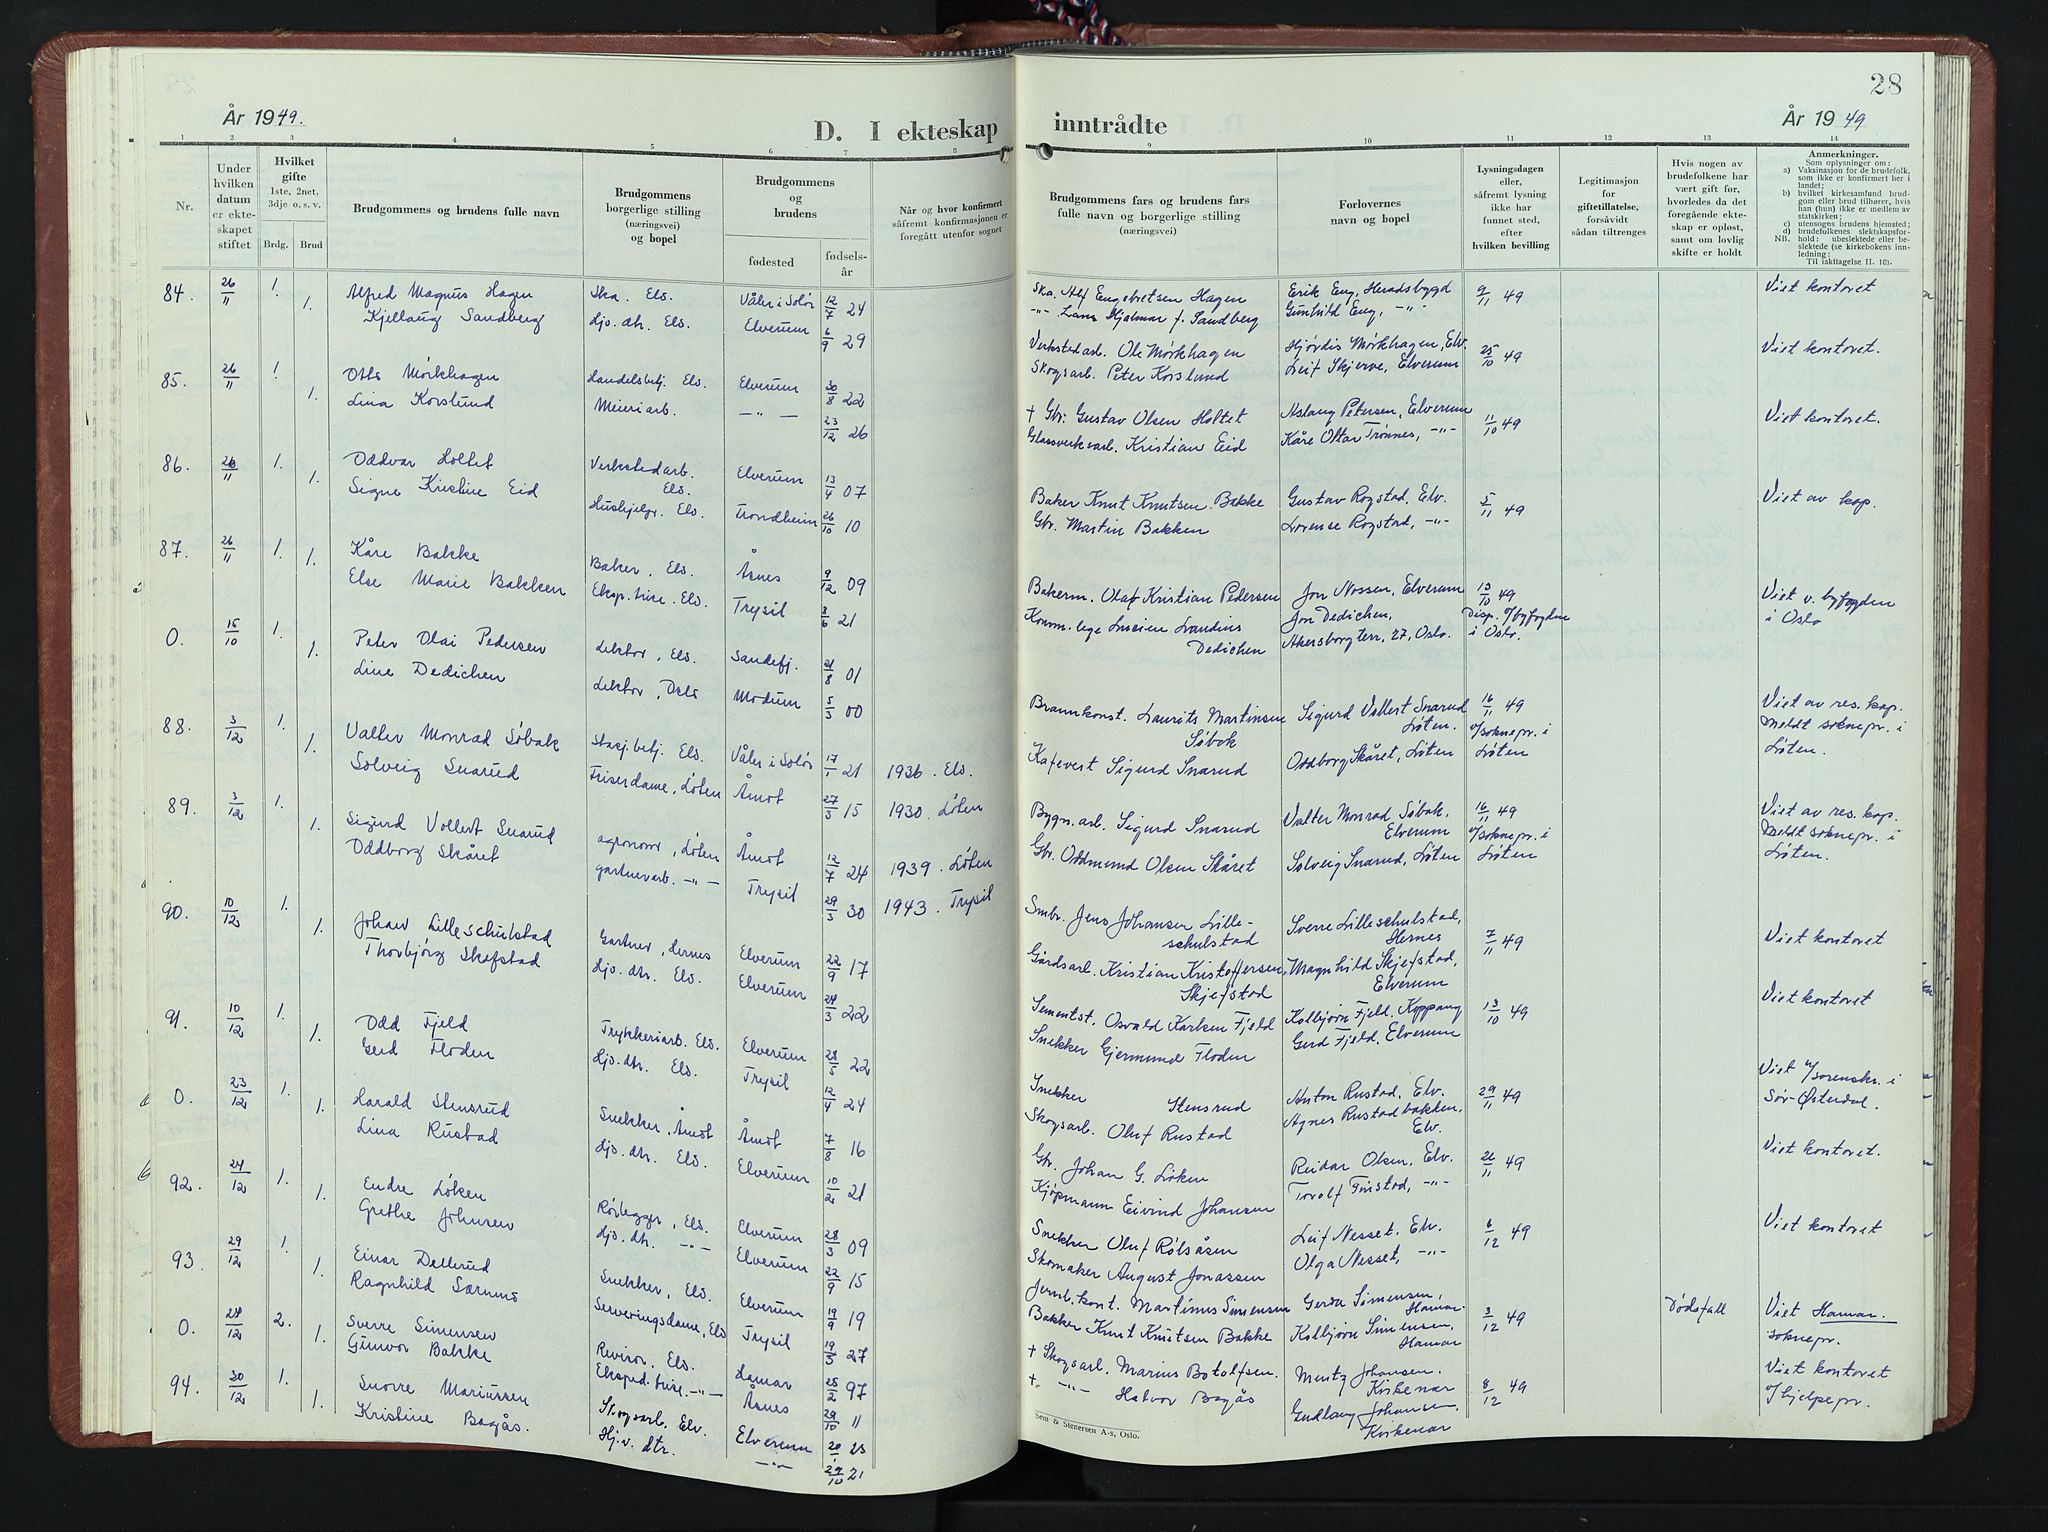 År 1949.
D. I ekteskap
1 2 3 4 5 6 7 8
Nr.
Under hvilken datum er ekteskapet stiftet
Hvilket gifte 1ste, 2net, 3dje o. s. v.
Brdg. Brud
Brudgommens og brudens fulle navn
Brudgommens borgerlige stilling (næringsvei) og bopel
Brudgommens og brudens
fødested fødselsår
Når og hvor konfirmert såfremt konfirmasjonen er foregått utenfor sognet
84. 26/11 1. Alfred Magnus Hagen Ska. Elv. Våler i Solør 12/7 24
1. Kjellaug Sandberg Hjv. dtr. Elv. Elverum 6/9 29
85. 26/11 1. Otto Mörkhagen Handelsbetj. Elv. Elverum 30/8 22
1. Lina Korslund Meieriarb. —"— 23/12 26
86. 26/11 1. Oddvar Holtet Verkstedarb. Elv. Elverum 13/4 07
1. Signe Kristine Eid Hushjelp. Elv. Trondheim 26/10 10
87. 26/11 1. Kåre Bakke Baker, Elv. Åsnes 9/12 09
1. Else Marie Bakken Eksp.trise. Elv. Trysil 3/6 21
0. 15/10 1. Peter Olai Pedersen Lektor, Elv. Sandefj. 21/8 01
1. Line Dedichen Lektor, Oslo Modum 5/3 00
88. 3/12 1. Valter Monrad Söbak Stasj. betj. Elv. Våler i Solør 17/1 21 1936. Elv.
1. Solveig Snarud Friserdame, Löten Åmot 27/3 15 1930. Löten
89. 3/12 1. Sigurd Vollert Snarud agronom, Löten Åmot 12/7 24 1939. Löten
1. Oddborg Skåret gartnerarb. —"— Trysil 29/3 30 1943. Trysil
90. 10/12 1. Johan Lilleschulstad Gartner, Hernes Elverum 22/9 17
1. Thorbjörg Skefstad Hjv. dtr. Elv. Elverum 24/3 22
91. 10/12 1. Odd Fjeld Trykkeriarb. Elv. Elverum 28/5 22
1. Gerd Floden Hjv. dtr. Elv. Trysil 12/4 24
0. 23/12 1. Harald Stensrud Snekker, Åmot Åmot 7/8 16
1. Lina Rustad Hjv. dtr. Elv. Elverum 10/2 21
92. 24/12 1. Endre Löken Rørlegger, Elv. Elverum 28/3 09
1. Grethe Johnsen Hjv. dtr. —"— Elverum 22/9 15
93. 29/12 1. Einar Dellerud Snekker, Elv. Elverum 19/9 19
1. Ragnhild Serveringsdame, Elv Trysil 19/3 27
0. 28/12 2. Sverre Simensen Revisor. Elv. Hamar 25/2 97
1. Gunvor Bakke Ekspd.trise. —"— Åsnes 29/10 11
94. 30/12 1. Snorre Mariussen Skogsarb. Elv. Elverum 20/1 23
1. Kristine Bagås. Hj.v. dtr. —"— 29/10 21
28
inntrådte
År 1949
9 10 11 12 13 14
Brudgommens fars og brudens fars fulle navn og borgerlige stilling (næringsvei)
Forlovernes navn og bopel
Lysningsdagen eller, såfremt lysning ikke har funnet sted, efter hvilken bevilling
Legitimasjon for giftetillatelse, forsåvidt sådan tiltrenges
Hvis nogen av brudefolkene har vært gift før, hvorledes da det foregående ekteskap er opløst, samt om lovlig skifte er holdt
Anmerkninger.
Som oplysninger om:
a) Vaksinasjon for de brudefolk, som ikke er konfirmert her i landet;
b) hvilket kirkesamfund brudgom eller brud tilhører, hvis han (hun) ikke er medlem av statskirken;
c) utensogns brudens hjemsted;
d) brudefolkenes slektskapsforhold: ubeslektede eller beslektede (se kirkebokens innledning:
NB.
Til iakttagelse II. 10).
Ska. Alf Engebretsen Hagen Erik Eng, Heradsbygd 9/11 49 Viet kontoret
—"— Lars Hjalmar J. Sandberg Gunhild Eng, —"—
Verkstedarb. Ole Mørkhagen Hjørdis Mørkhagen, Elv. 25/10 49 Viet kontoret.
Skogsarb. Peter Korslund Leif Skjerve, Elverum
+ Gbr. Gustav Olsen Holtet Aslaug Petersen, Elverum 11/10 49 Viet kontoret.
Glassverksarb. Kristian Eid Kåre Ottar Trønnes, —"—
Baker Knut Knutsen Bakke Gustav Rogstad, Elv. 5/11 49 Viet av kap.
Gbr. Martin Bakken Lorense Rogstad, —"—
Bakerm. Olaf Kristian Pedersen Jon Mossen, Elverum 13/10 49 Viet v. byfogden
Komm. lege Lucien Dedichen Jon Dedichen, Akersborgterr. 27, Oslo. Disp. v/byfogden i Oslo. i Oslo
Brannkonst. Laurits Martinsen Söbak Sigurd Vollert Snarud Løten. 16/11 49 Viet av res. kap.
Kafevert Sigurd Snarud Oddborg Skåret, Løten v/soknepr. i Løten Meldt soknepr. i Løten.
Bygn. arb. Sigurd Snarud Valter Monrad Söbak, Elverum 16/11 49 Viet av res. kap.
Gbr. Oddmund Olsen Skåret Solveig Snarud, Løten v/soknepr. i Løten Meldt soknepr. i Løten.
Smbr. Jens Johansen Lilleschulstad Sverre Lilleschulstad, Hernes 7/11 49 Viet kontoret
Gårdsarb. Kristian Kristoffersen Skjefstad Magnhild Skjefstad, Elverum
Sementst. Osvald Karlsen Fjeld Kolbjørn Fjeld, Koppang 13/10 49 Viet kontoret
Snekker Gjermund Floden Gerd Fjeld, Elverum
Snekker Stensrud Anton Rustad, Elv. 29/11 49 Viet v/sorenskr. i
Skogsarb. Oluf Rustad Agnes Rustadbakken, Elv. Sør-Østerdal.
Gbr. Johan G. Löken Reidar Olsen, Elv. 26/11 49 Viet kontoret.
Kjøpmann Eivind Johansen Torolf Finstad, —"—
Snekker Oluf Rölsåsen Leif Nesset, Elv. 6/12 49 Viet kontoret
Skomaker August Jonassen Olga Nesset, —"—
Jernb. kont. Martinus Simensen Gerda Simensen, Hamar. 3/12 49 Dødsfall Viet Hamar.
Bakker Knut Knutsen Bakke Kolbjørn Simensen, Hamar soknepr.
+ Skogsarb. Marius Botolfsen Mentz Johansen, Kirkenær 8/12 49 Viet kontoret
+ —"— Halvor Bagås Gudlaug Johansen, Kirkenær v/hjelpepr.
Sem & Stenersen A-s, Oslo.